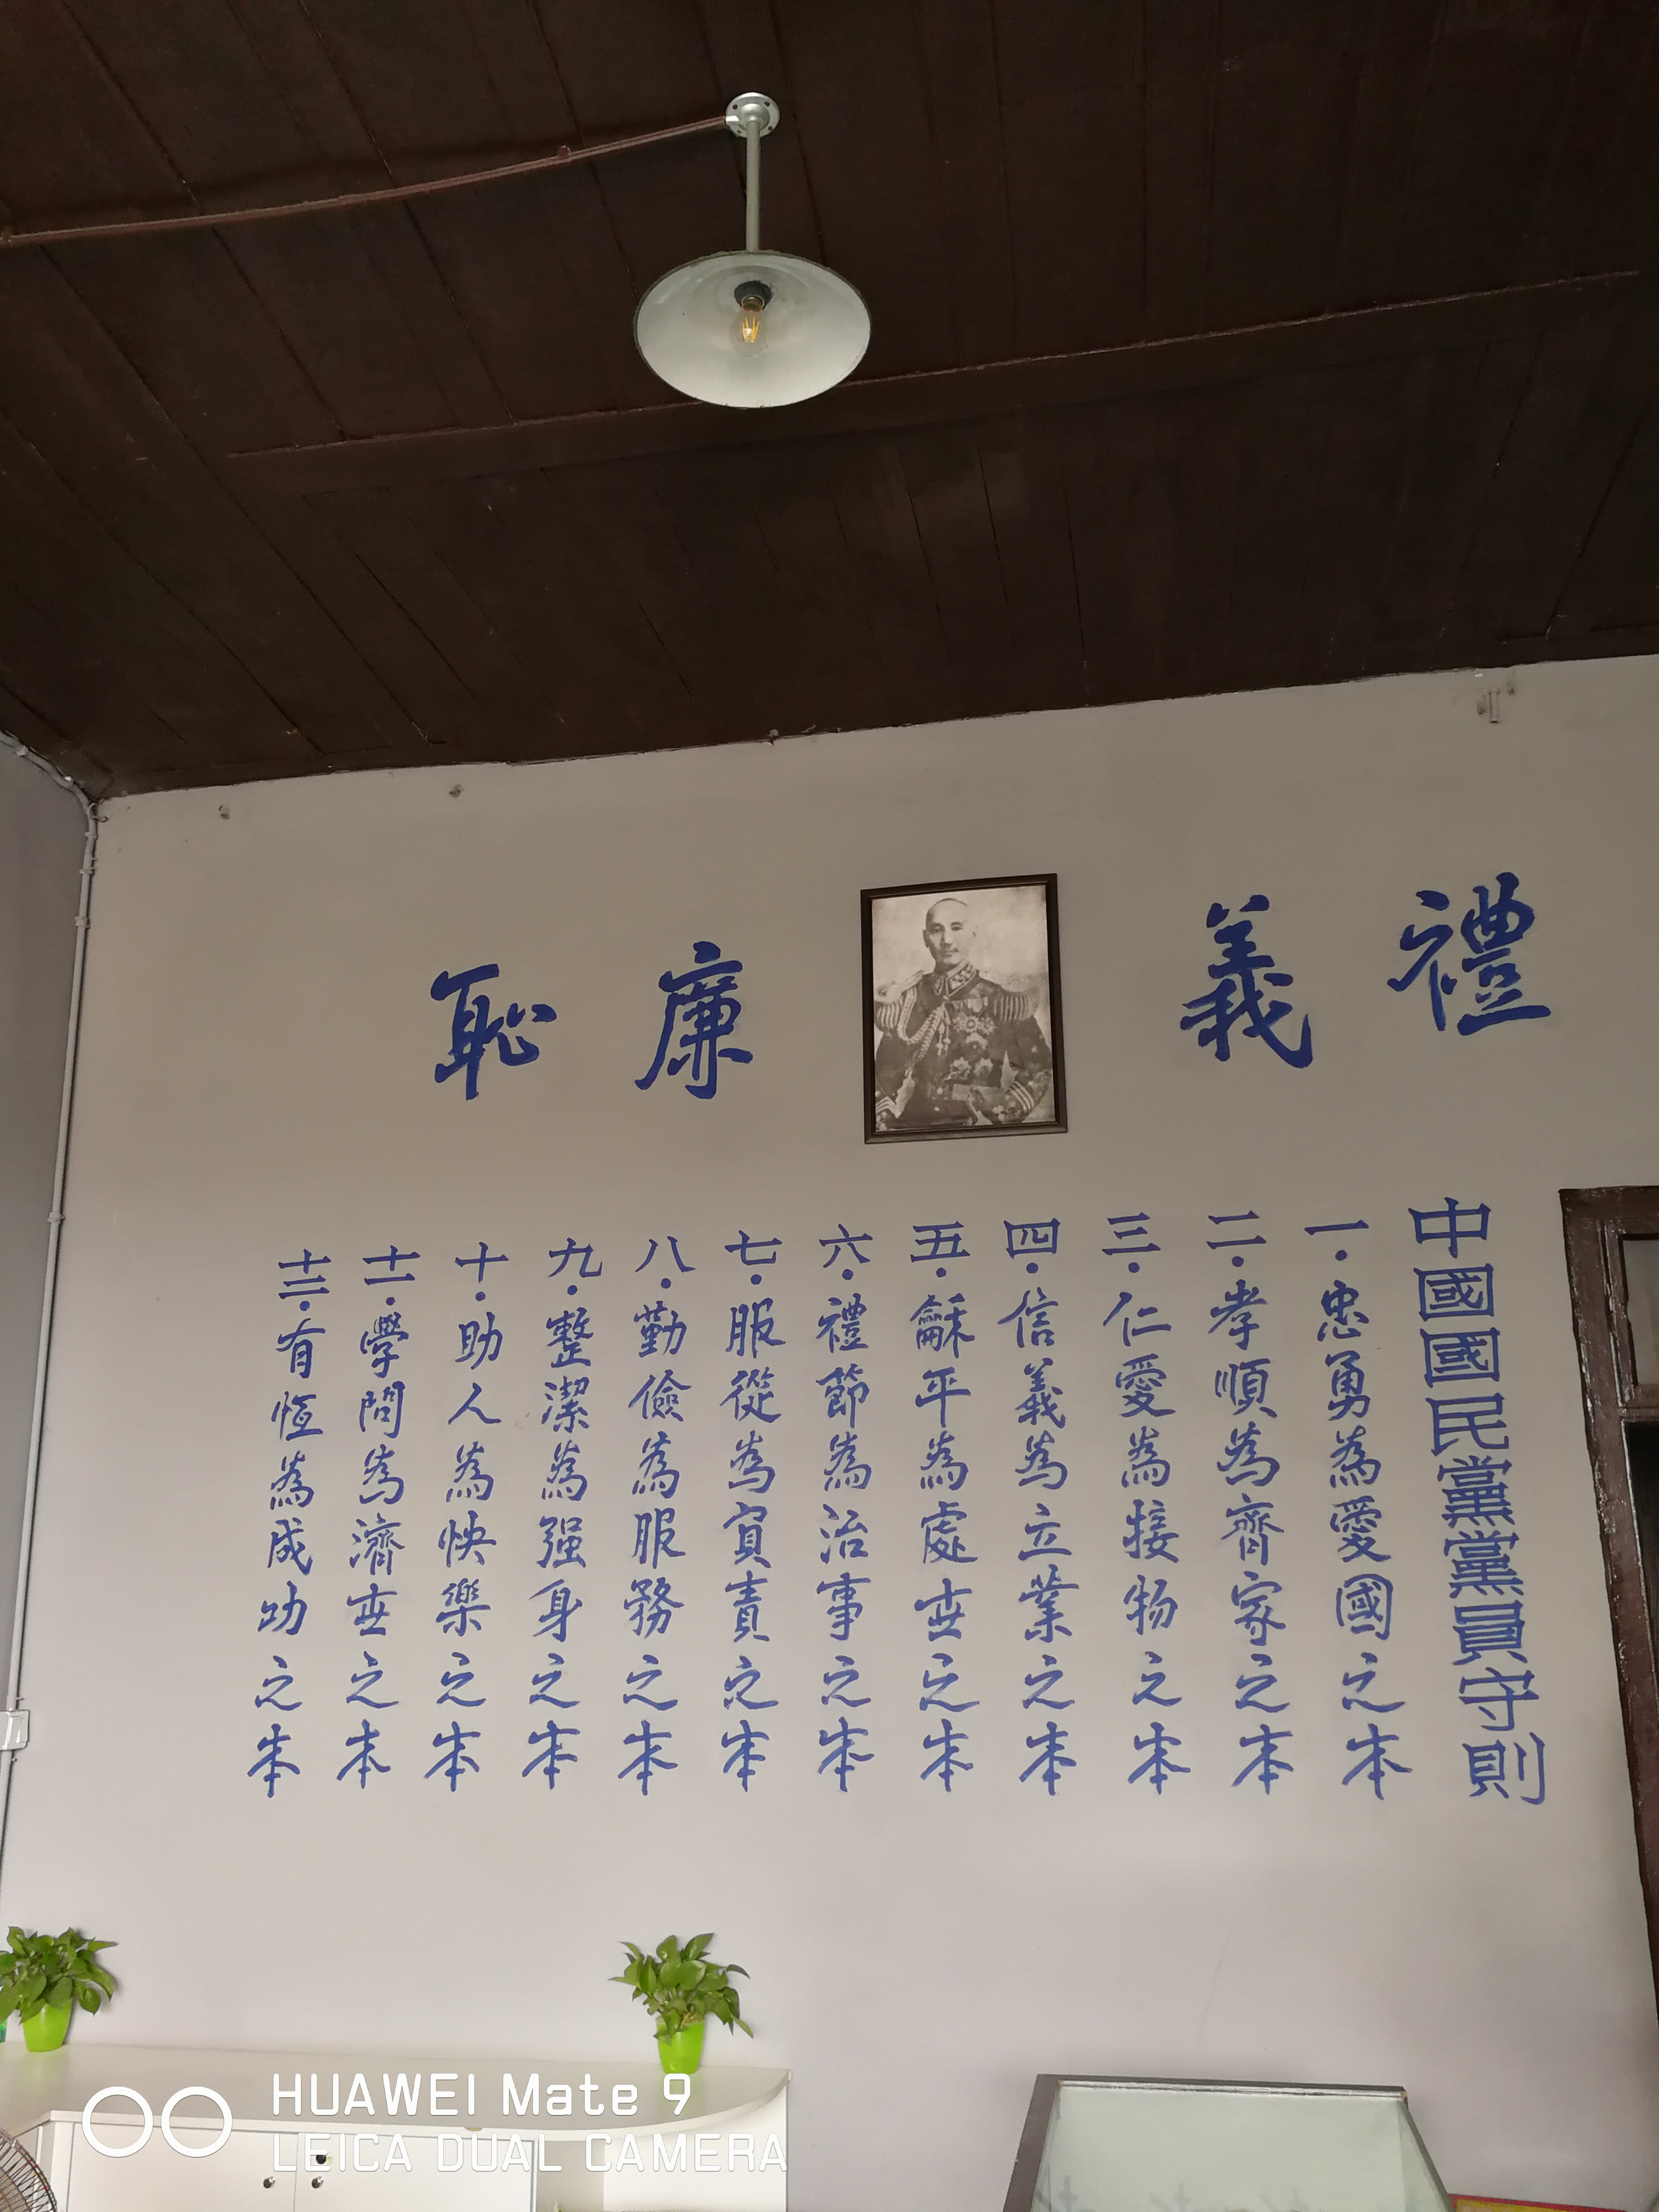 禮義廉恥
中國國民黨黨員守則
一·忠勇為愛國之本
二·孝順為齊家之本
三·仁愛為接物之本
四·信義為立業之本
五·龢平為處世之本
六·禮節為治事之本
七·服從為負責之本
八·勤儉為服務之本
九·整潔為强身之本
十·助人為快樂之本
十一·學問為濟世之本
十二·有恆為成功之本
HUAWEI Mate 9
LEICA DUAL CAMERA